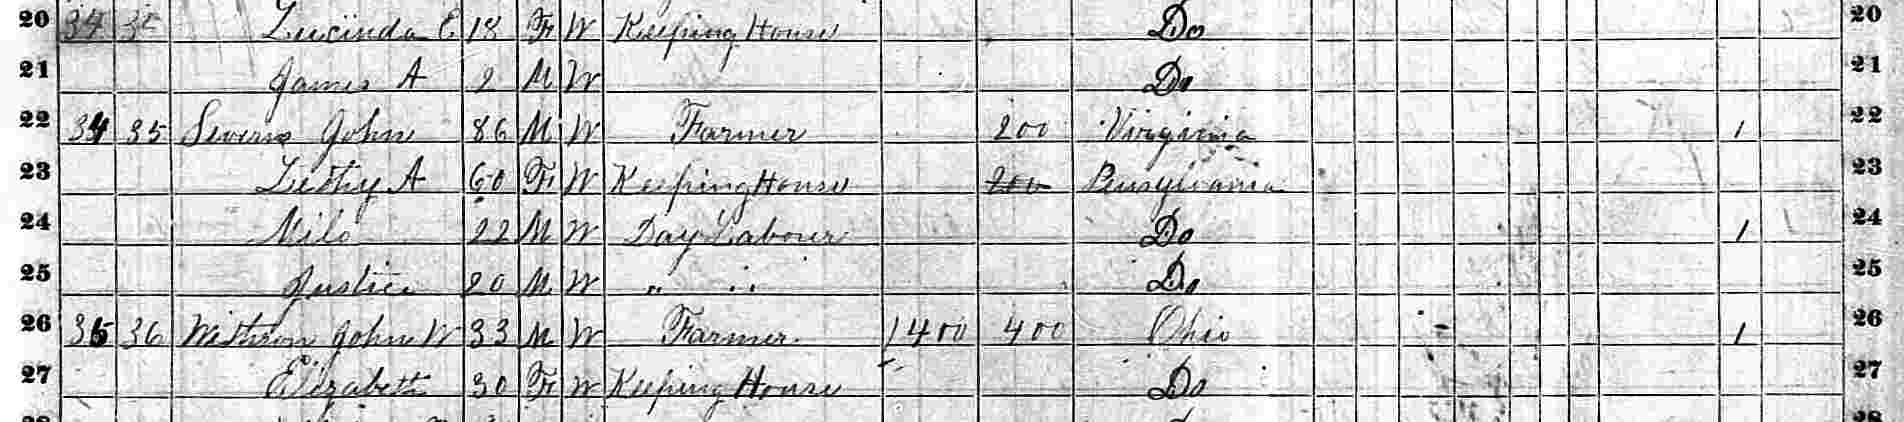 20 34 Lucinda E 18 F W Keeping House Do 20
21 James A 2 M W Do 21
22 34 35 Severns John 86 M W Farmer 200 Virginia 1 22
23 A 60 F W Keeping House 200 Pensylvania 23
24 Milo 22 M W Day Labourer Do 1 24
25 Justice 20 M W " " Do 25
26 35 36 John W 33 M W Farmer 1400 400 Ohio 1 26
27 Elizabeth 30 F W Keeping House Do 27